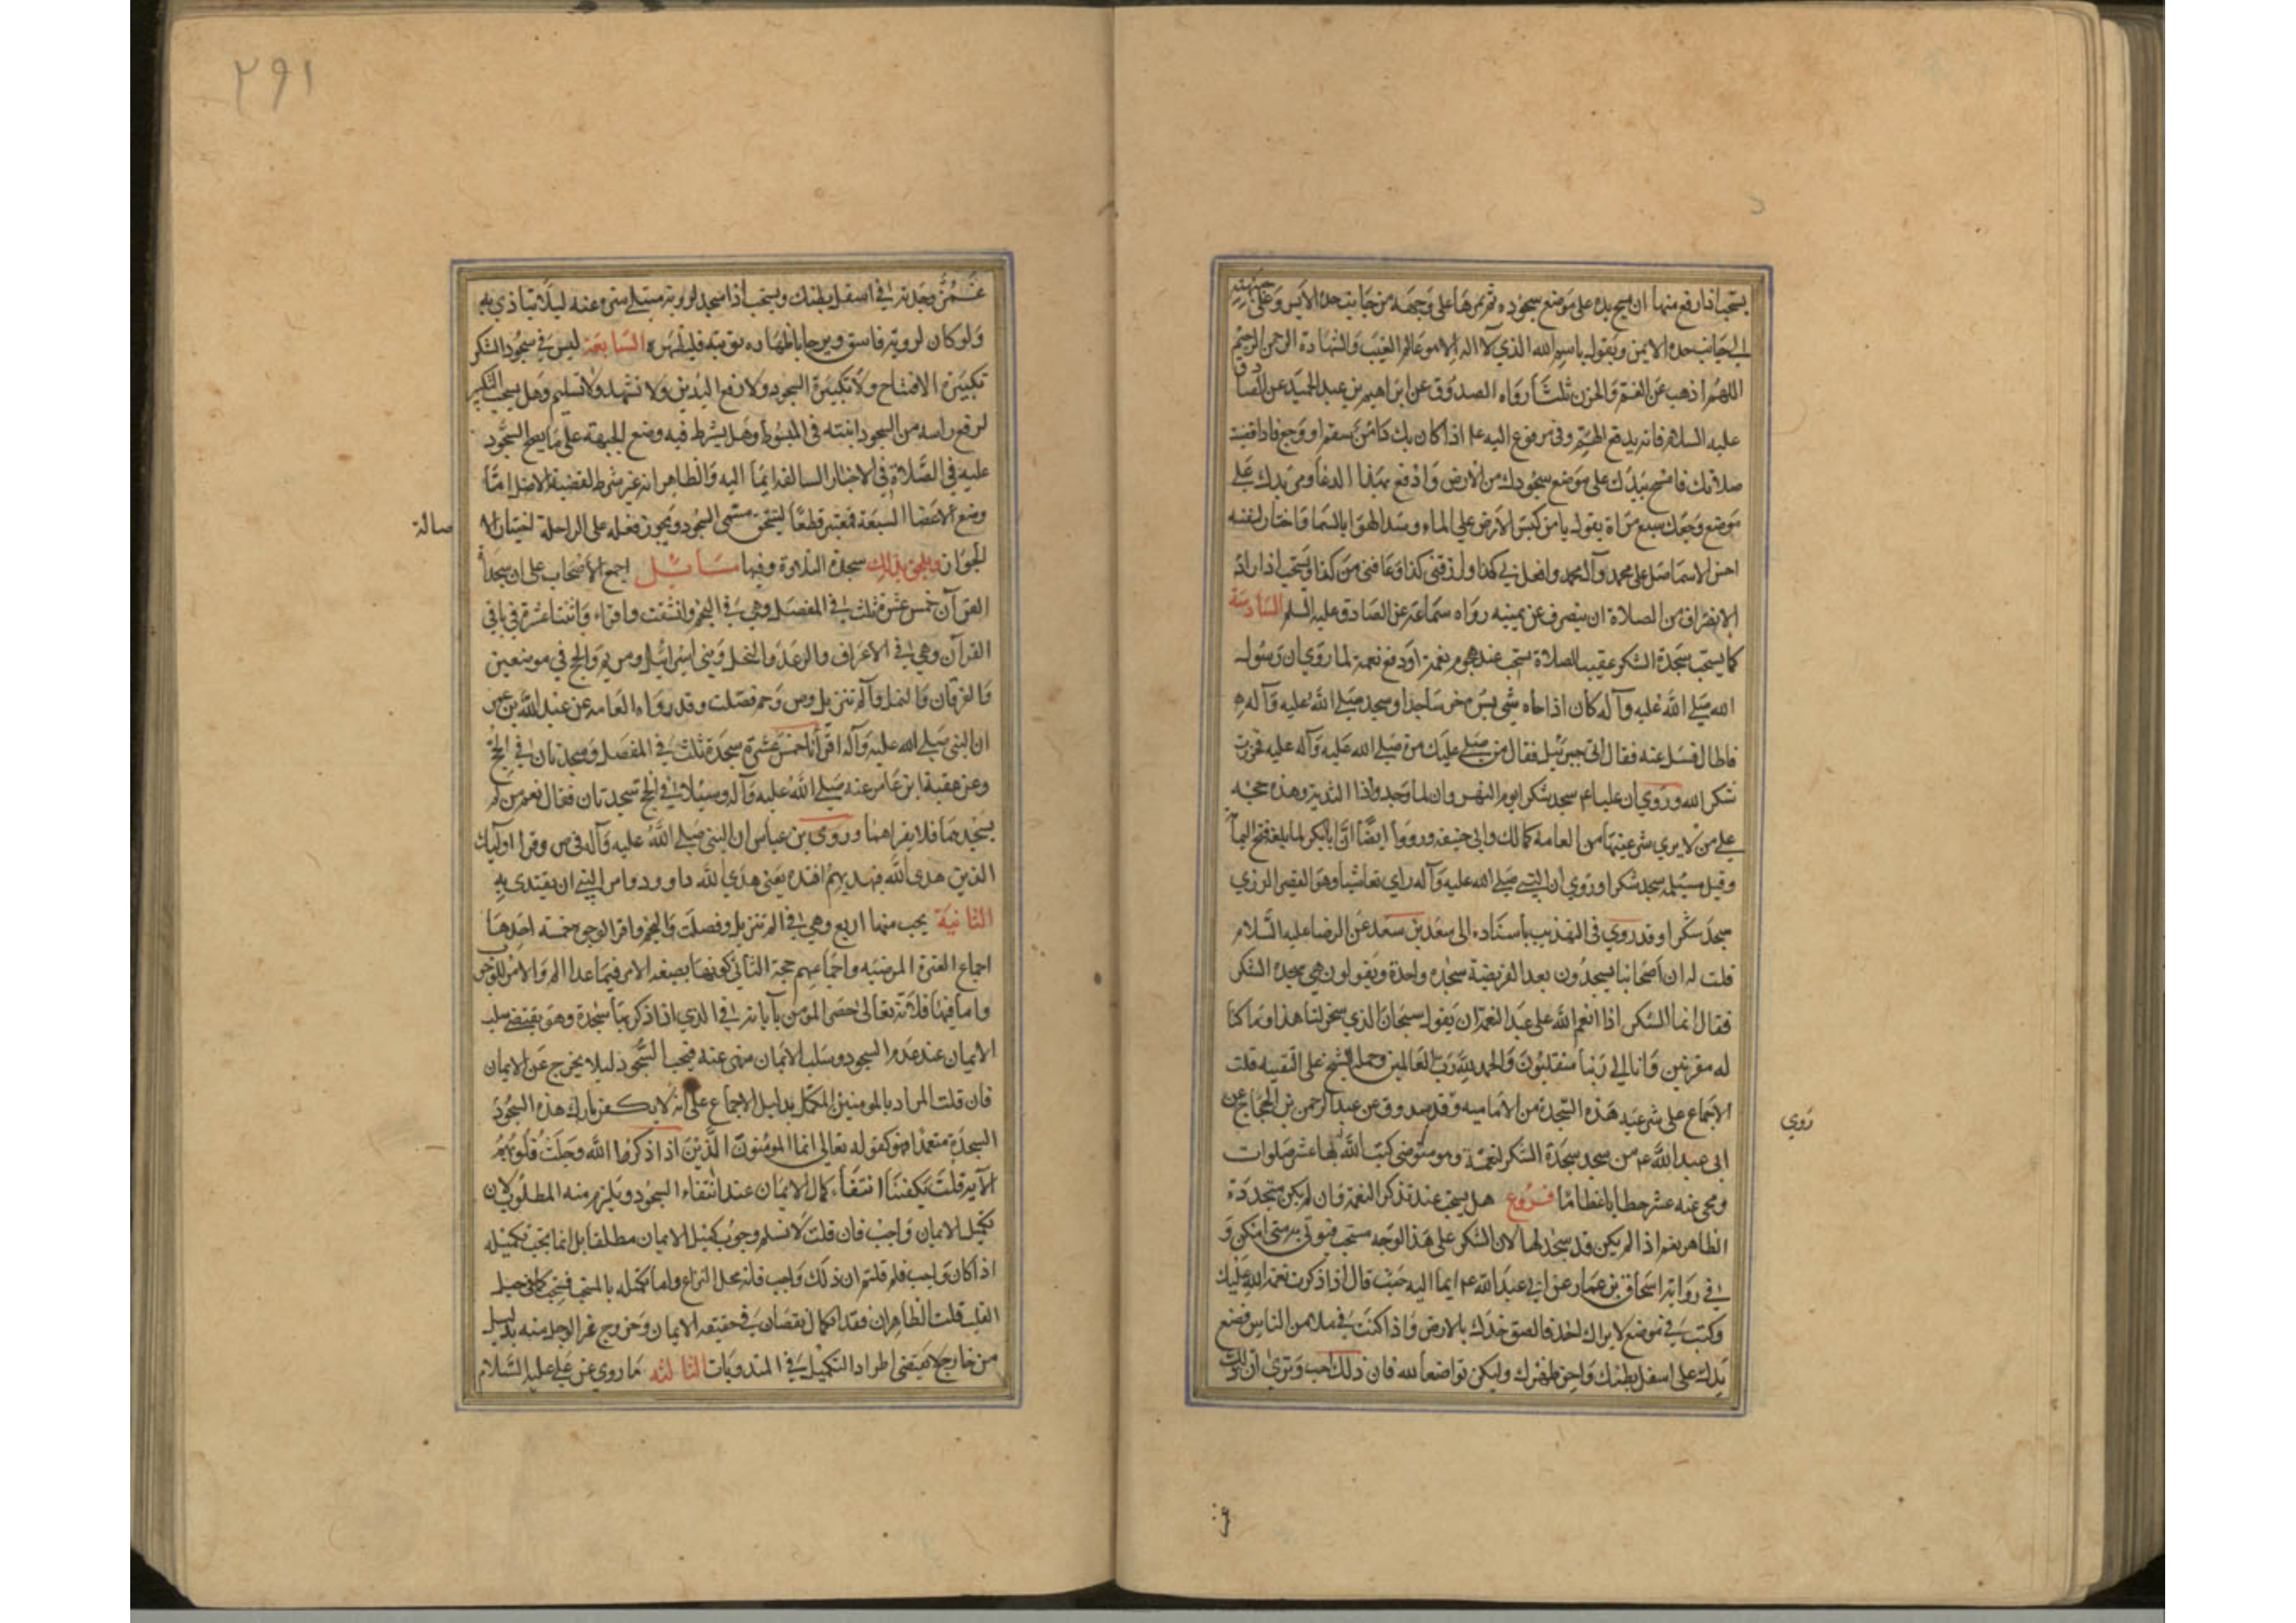 يستحب اذا رفع منها ان يمسح يده على موضع سجوده ثم يمرها على وجهه من جانب خده الايسر وعلى جبهته
الى جانب خده الايمن ويقول باسم الله الذي لا اله الا هو عالم الغيب والشهادة الرحمن الرحيم
اللهم اذهب عن الغم والحزن ثلثا رواه الصدوق عن ابراهيم بن عبد الحميد عن الصادق
عليه السلام فانه يدفع الهم وفي مرفوع اليه ع اذا كان بك داء من سقم او وجع فاذا قضيت
صلاتك فامسح بيدك على موضع سجودك من الارض وادع بهذا الدعا ومر يدك على
موضع وجعك سبع مراة يقول يا من كبس الارض على الماء وسد الهوا بالسما واختار لنفسه
احسن الاسما صل على محمد وآل محمد وافعل بي كذا وارزقني كذا وعافني من كذا ويستحب اذا اراد
الانصراف من الصلاة ان ينصرف عن يمينه رواه سماعة عن الصادق عليه السلم السادسة
كما يستحب سجدة الشكر عقيب الصلاة يستحب عند هجوم نعمة او دفع نعمة لما روي ان رسول
الله صلى الله عليه وآله كان اذا جاه شي يسره خر ساجدا وسجد صلى الله عليه وآله مرة
فاطال فسل عنه فقال اتى جبرئيل فقال من صلى عليك مرة صلى الله عليه وآله عليه فخررت
شكر الله وروي ان عليا ع سجد شكرا يوم النهر وان لما وجد واذا الثدية وهذه حجة
على من لا يرى شرعيتها من العامة كمالك وابي حنيفة ورووا ايضا ان ابا بكر لما بلغه فتح اليمامة
وقيل مسيلمة سجد شكرا وروي ان النبي صلى الله عليه وآله راي نغاشيا وهو القصير الرزي
سجد شكرا وقد روي في التهذيب باسناده الى سعد بن سعد عن الرضا عليه السلام
قلت له ان اصحابنا يسجدون بعد الفريضة سجدة واحدة ويقولون هي سجدة الشكر
فقال انما الشكر اذا انعم الله على عبد النعمة ان يقول سبحان الذي سخر لنا هذا وما كنا
له مقرنين وانا الى ربنا منقلبون والحمد لله رب العالمين وحمله الشيخ على التقية قلت
الاجماع على شرعية هذه السجدة من الامامية وقد صدوق عن عبد الرحمن بن الحجاج عن
روي
ابي عبد الله ع من سجد سجدة الشكر لنعمة وهو متوضئ كتب الله بها عشر صلوات
ومحى عنه عشر خطايا عظاما فروع هل يستحب عند تذكر النعمة فان لم يكن متجددة
الظاهر نعم اذا لم يكن قد سجد لها لان الشكر على هذا الوجه مستحب فيوتى به متى امكن و
في رواية اسحاق بن عمار عن ابي عبد الله ع ايما اليه حيث قال اذا ذكرت نعمة الله عليك
وكنت في موضع لا يراك احد فالصق خدك بالارض واذا كنت في ملا من الناس فضع
يدك على اسفل بطنك واحن ظهرك وليكن تواضعا لله فان ذلك احب وترى ان ذلك
و
٢٩١
غمز وجدته في اسفل بطنك ويستحب اذا سجد لروية مبتلى ستره عنه ليلا يتاذى به
ولو كان لروية فاسق ورجا باظهاره توبته فليظهره السابعة ليس في سجود الشكر
تكبيرة الافتتاح ولا تكبيرة السجود ولا رفع اليدين ولا تشهد ولا تسليم وهل يستحب التكبير
لرفع راسه من السجود اثبته في المبسوط وهل يشترط فيه وضع الجبهة على ما يصح السجود
عليه في الصلاة في الاخبار السالفة ايما اليه والظاهر انه غير شرط لقضية الاصل اما
وضع الاعضا السبعة فمعتبر قطعا ليتحقق مسمى السجود ويجوز فعله على الراحلة اختيارا لا
صالة
الجواز ويلحق بذلك سجدة التلاوة وفيها مسائل اجمع الاصحاب على ان سجدات
القرآن خمس عشرة ثلث في المفصل وهي في النجم وانشقت واقراء واثنتا عشرة في باقي
القرآن وهي في الاعراف والرعد والنحل وبني اسرائيل ومريم والحج في موضعين
والفرقان والنمل وآلم تنزيل وص وحم فصلت وقد رواه العامة عن عبد الله بن عمر
ان النبي صلى الله عليه وآله اقرأنا خمس عشرة سجدة ثلث في المفصل وسجدتان في الحج
وعن عقبة ابن عامر عنه صلى الله عليه وآله وسيلا في الحج سجدتان فقال نعم من لم
يسجدهما فلا يقراهما وروى بن عباس ان النبي صلى الله عليه وآله في ص وقرا اوليك
الذين هدى الله فبهديهم اقتده يعني هدى الله داوود وامر النبي ان يقتدى به
الثانية يجب منها اربع وهي في الم تنزيل وفصلت والنجم واقرا لوجوه خمسة احدها
اجماع العترة المرضية واجماعهم حجة الثاني كونها بصيغة الامر فيما عدا الم والامر للوجوب
واما فيها فلانه تعالى حصر المؤمن بآياته في الذي اذا ذكر بها سجد وهو يقتضي سلب
الايمان عند عدم السجود وسلب الايمان منهى عنه فيجب السجود ليلا يخرج عن الايمان
فان قلت المراد بالمومنين المكمل بدليل الاجماع على انه لا يكفر تارك هذه السجود
السجدة متعمدا فهو كقوله تعالى انما المؤمنون الذين اذا ذكروا الله وجلت قلوبهم
الآية قلت يكفينا انتفاء كمال الايمان عند انتفاء السجود ويلزم منه المطلوب لان
تكميل الايمان واجب فان قلت لا نسلم وجوب تكميل الايمان مطلقا بل انما يجب تكميله
اذا كان واجب فلم قلتم ان ذلك واجب فانه محل النزاع واما تكمله بالمستحب فيستحب كما في وجل
القلب قلت الظاهر ان فقد الكمال نقصان في حقيقة الايمان وخروج غير الوجل منه بدليل
من خارج لا يقتضي اطراد التكميل في المندوبات الثالثة ما روي عن علي عليه السلام